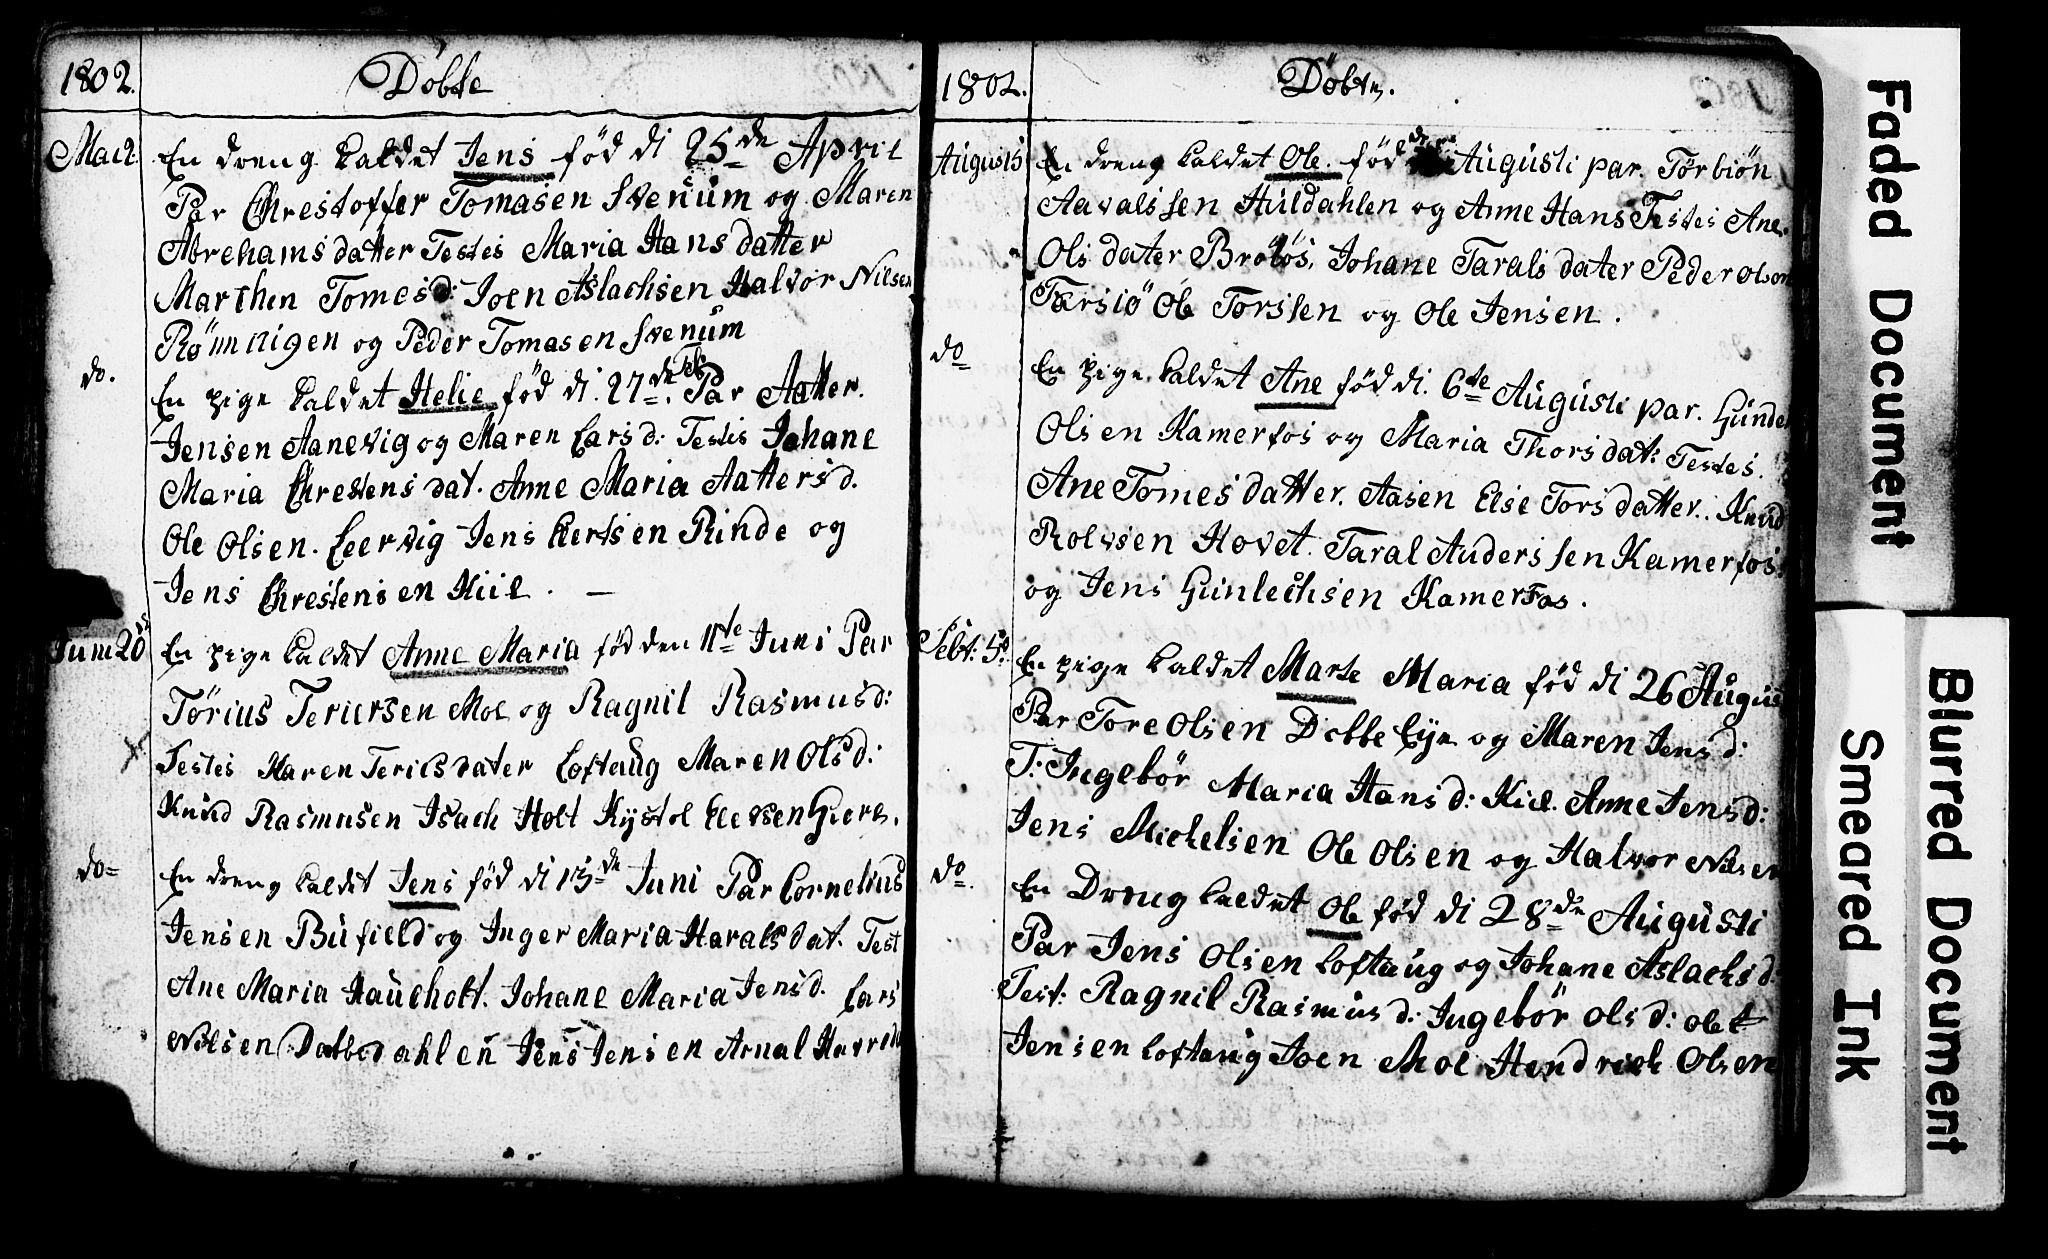 1802.
Döbte
Mai 2
En dreng kaldet Jens föd di 25de April
Par Chrestoffer Tomasen Svenum og Maren
Abrehamsdatter Testes Maria Hansdatter
Marthen Tomesd: Joen Aslachsen Halvor Nilsen
Rönningen og Peder Tomasen Svenum
do.
En pige kaldet Helie föd di. 27de. Par Aatter.
Jensen Aanevig og Maren Larsd: Testes Johane
Maria Chrestens dat. Anne Maria Aattersd.
Ole Olsen. Leervig Jens Lertsen Rinde og
Jens Chrestensen Kiil. —
Juni 20
En pige kaldet Anne Maria föd den 11te Juni Par
Törius Teriersen Moe og Ragnil Rasmusd:
Testes Karen Teriesdater Loftaug Maren Olsd:
Knud Rasmusen Isach Holt Kystol Elevsen
do=
En dreng kaldet Jens föd di 13de Juni Par Cornelius
Jensen Bufield og Inger Maria Haralsdat. Test
Ane Maria Haueholt. Johane Maria Jensd. Lars
Nilsen Dalbedahlen Jens Jensen Arnal
1802.
Döbte.
August 15
En dreng kaldet Ole. föd Augusti par. Törbiön
Aavalssen Huldahlen og Anne Hans Testes Ane.
Olsdater Brotös. Johane Taralsdater Peder Olson
Tarsiö Ole Torssen og Ole Jensen.
do
En pige. kaldet Ane föd di. 6te Augusti par. Gunde
Olsen Kamerfos og Maria Thorsdat: Testes.
Ane Tomesdatter. Aasen Else Torsdatter. Knud
Rolvsen Hovet. Taral Anderssen Kamerfos.
og Jens Gunlechsen Kamerfos.
Sebt: 5
En pige kaldet Marte Maria föd di 26 Augus
Par Tore Olsen Dobbe Eye og Maren Jensd:
T: Ingebör Maria Hansd: Kiil. Anne Jensd:
Jens Michelsen Ole Olsen og Halvor Nilsen
do.
En Dreng kaldet Ole föd di 28de Augusti
Par Jens Olsen Loftaug og Johane Aslachsd:
Test: Ragnil Rasmusd: Ingebör Olsd: Ole
Jensen Loftaug Joen Moe Hendrich Olsen
Faded Document
Blurred Document
Smeared Ink